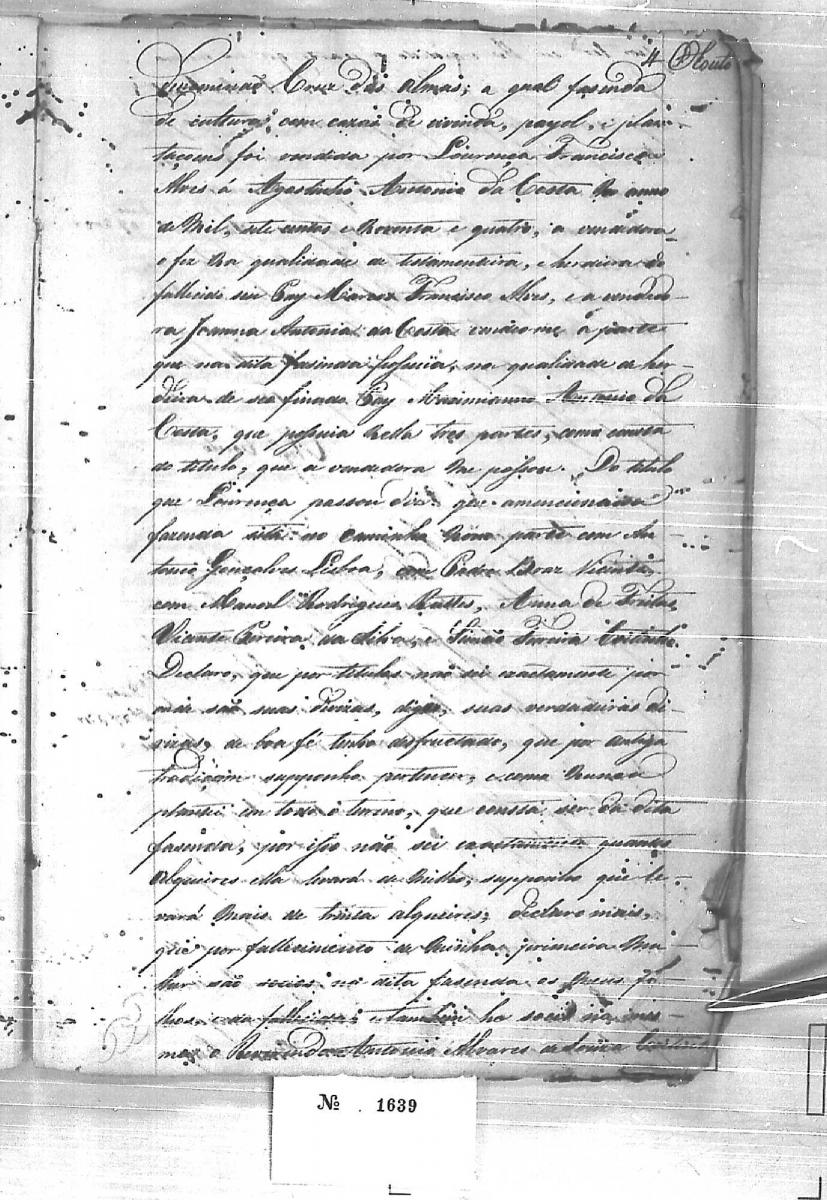 4 Couto
denominad Cruz das Almas; a qual fasenda
de cultura, com cazas de vivenda, payol, e plan-
taçoens foi vendida por Lourença Francisca
Alves á Agostinho Antonio da Costa no anno
de Mil, sete centos e noventa e quatro, a vendedora
o fez na qualidade de testamenteira, e herdeira do
fallecido seu Pay Marcos Francisco Alves, e a vendedo-
ra Joanna Antonia da Costa vendeo me a parte
que na dita fasenda possuia, na qualidade de her-
deira de seo finado Pay Maximianno Antonio da
Costa, que possuia nella tres partes, como consta
do titulo, que a vendedora me passou. Do titulo
que Lourença passou diz que amencionada
fazenda sita no caminho novo parte com An-
tonio Gonçalves Lisboa, com Padre Braz Vicente,
com Manoel Rodrigues, Anna de Freitas
Vicente Pereira da Silva, e Simão Pereira
Declaro, que por titulos não sei exactamente por
onde são suas divizas, digo, suas verdadeiras di-
vizas, de boa fé tenho disfructado, que por antiga
tradiçaom supponho pertencer, e como nunca
plantei em todo o terreno, que consta ser da dita
fasenda, por isso não sei exactamente quantos
Alqueires ella levará de Milho, supponho que le-
vará mais de trinta alqueires; declaro mais,
que por fallecimento de minha primeira mu-
lher são socios na dita fasenda os meus fi-
lhos, e da fallecida; e tambem he socio na mes-
ma o Reverendo Antonio Alvares de Souza
Nº 1639